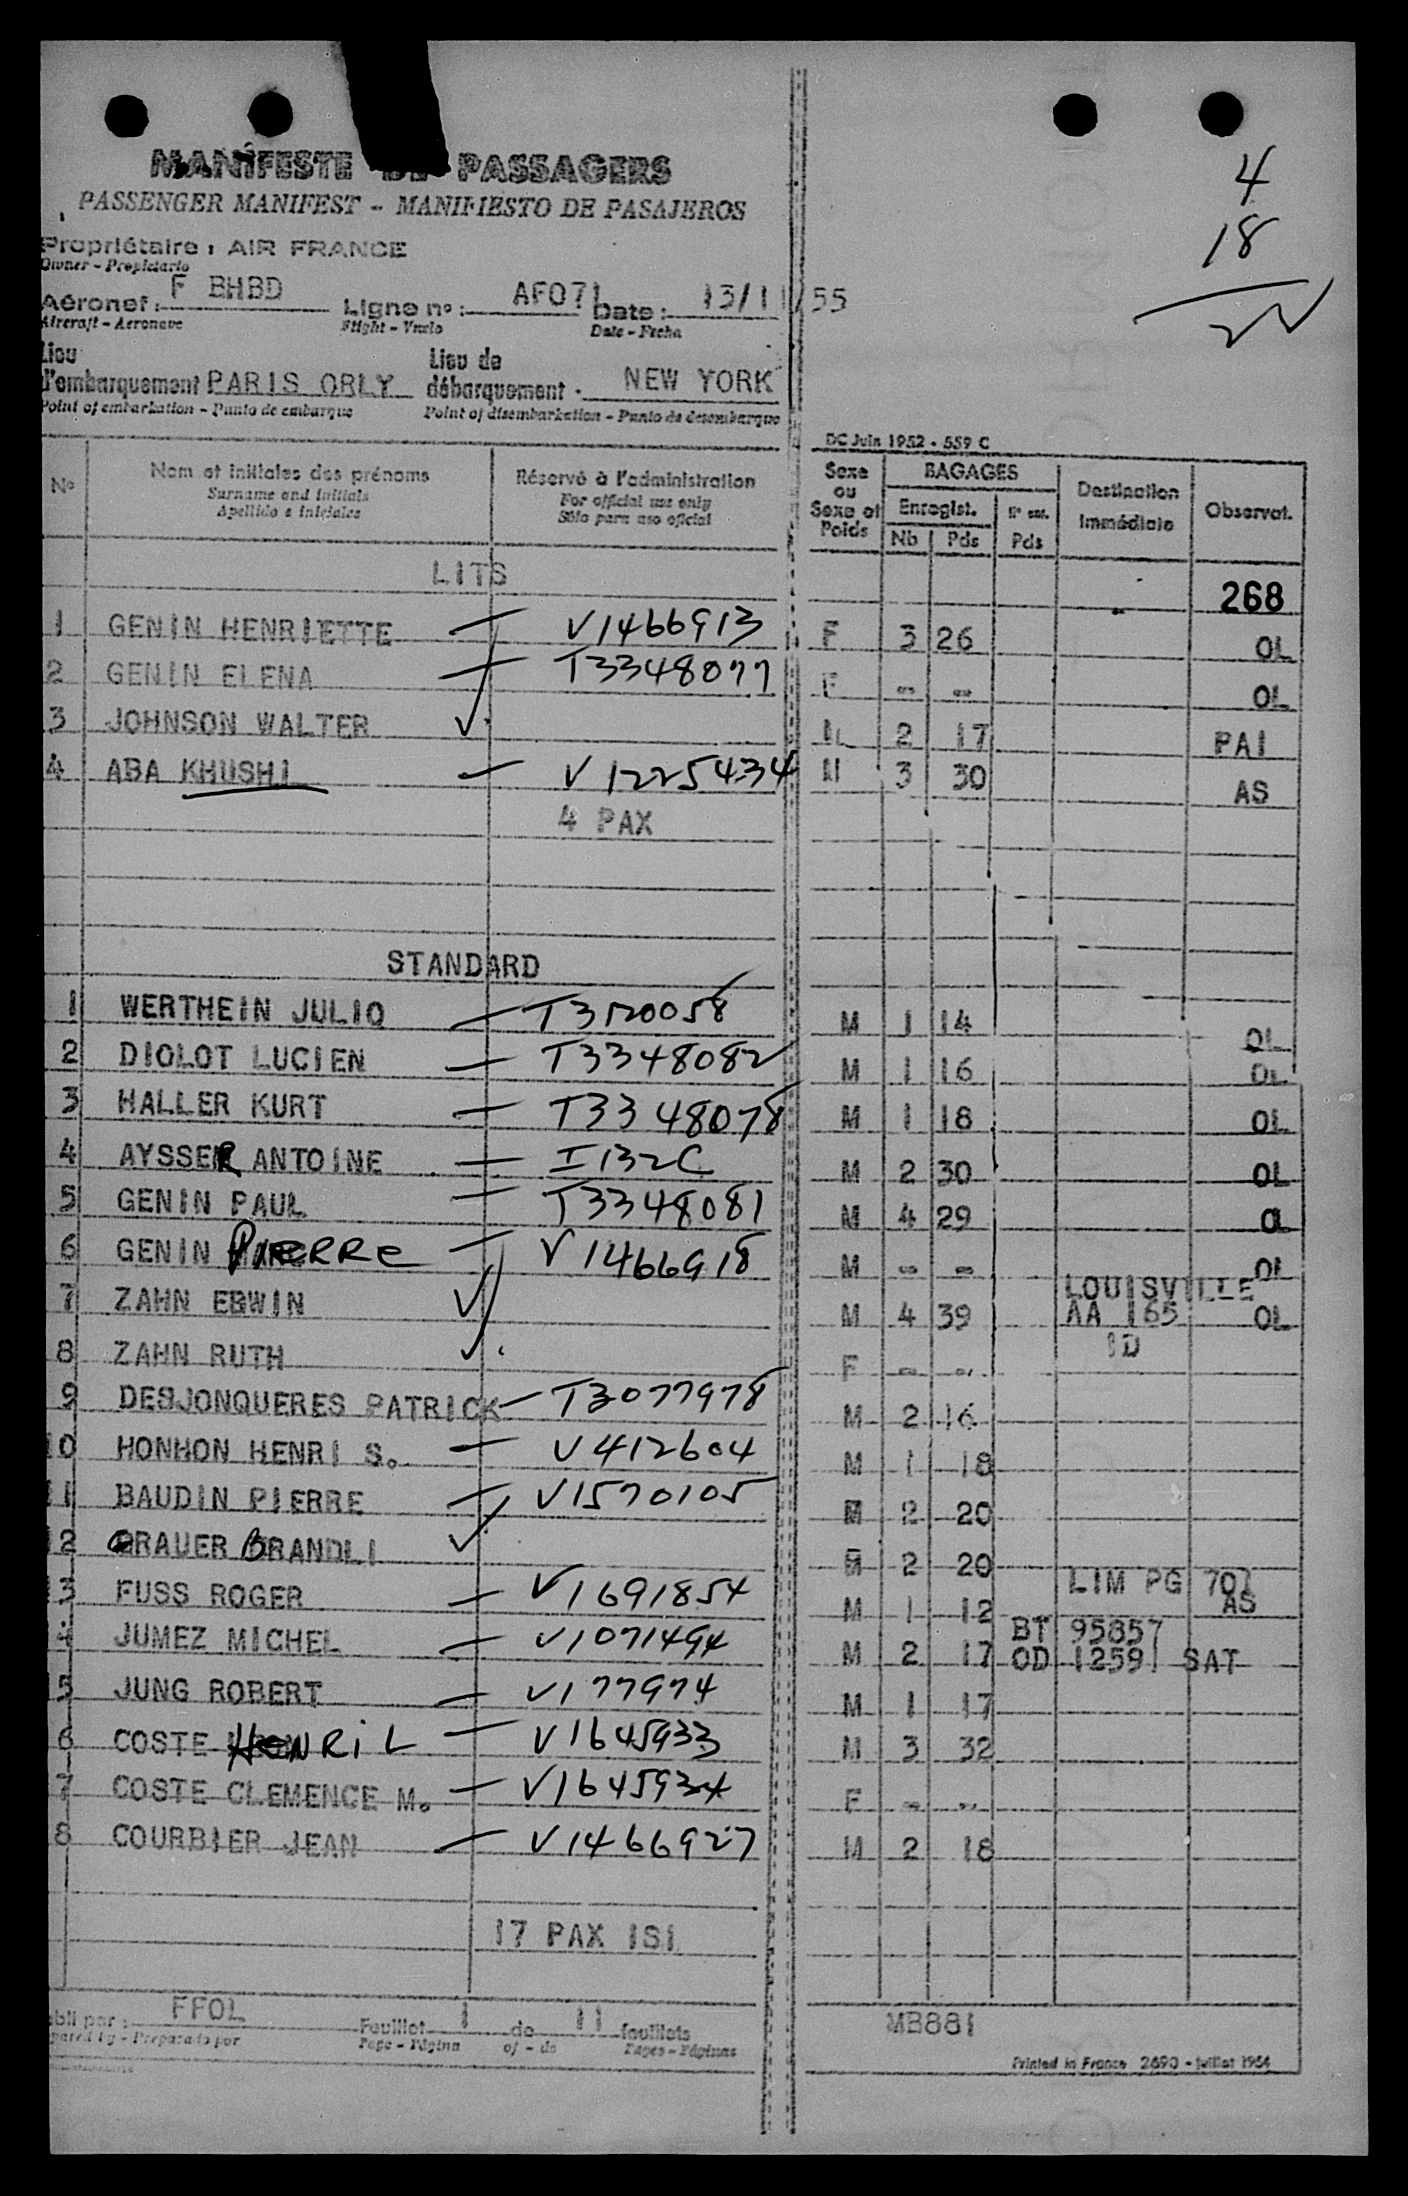 4
18
22
MANIFESTE DE PASSAGERS
PASSENGER MANIFEST - MANIFIESTO DE PASAJEROS
Propriétaire : AIR FRANCE
Owner - Propietario
Aéronef : F BHBD Ligne n° : AF071 Date : 13/11/55
Aircraft - Aeronave Flight - Vuelo Date - Fecha
Lieu d'embarquement PARIS ORLY Lieu de débarquement NEW YORK
Point of embarkation - Punto de embarque Point of disembarkation - Punto de desembarque
DC Juin 1952 - 559 C
N° Nom et initiales des prénoms Réservé à l'administration Sexe ou Sexe et Poids BAGAGES Destination Immédiate Observat.
Surname and initials For official use only Enregist. N° enr.
Apellido e iniciales Sólo para uso oficial Nb Pds Pds
LITS
268
1 GENIN HENRIETTE V1466913 F 3 26 OL
2 GENIN ELENA T3348077 F - - OL
3 JOHNSON WALTER 2 17 PAI
4 ABA KHUSHI V1225434 3 30 AS
4 PAX
STANDARD
1 WERTHEIN JULIO T3520058 M 1 14 OL
2 DIOLOT LUCIEN T3348082 M 1 16 OL
3 HALLER KURT T3348078 M 1 18 OL
4 AYSSER ANTOINE I132C M 2 30 OL
5 GENIN PAUL T3348081 M 4 29 OL
6 GENIN PIERRE V1466918 M - - OL
7 ZAHN EDWIN M 4 39 LOUISVILLE AA 165 OL
8 ZAHN RUTH F - - ID
9 DESJONQUERES PATRICK T3077978 M 2 16
10 HONHON HENRI S. V412604 M 1 18
11 BAUDIN PIERRE V1570105 M 2 20
12 GRAUER BRANDLI 2 20
13 FUSS ROGER V1691854 M 1 12 LIM PG 701 AS
4 JUMEZ MICHEL V1071494 M 2 17 BT 95857 OD 12591 SAT
5 JUNG ROBERT V177974 M 1 17
6 COSTE HENRI L V1645933 M 3 32
7 COSTE CLEMENCE M. V1645934 F - -
8 COURBIER JEAN V1466927 M 2 18
17 PAX 1S1
bli par : FFOL Feuillet 1 de 11 feuillets MB881
pared by - Preparado por Page - Página of - de Pages - Páginas
Printed in France 2690 - juillet 1954